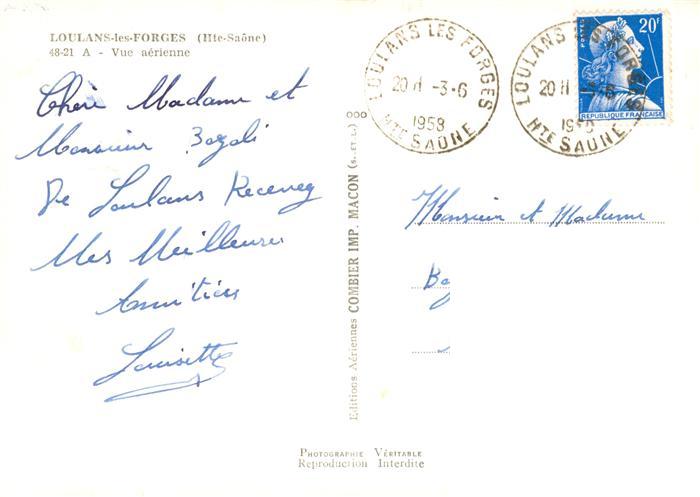 LOULANS-les-FORGES (Hte-Saône)
48-21 A - Vue aérienne
Chère Madame et
Monsieur
De Loulans Recevez
Mes Meilleures
Amitiés
Louisette
Editions Aériennes COMBIER IMP. MACON (S.-ET-L.)
LOULANS LES FORGES
20 H -3-6
1958
HTE SAÔNE
LOULANS LES FORGES
20 H
HTE SAÔNE
POSTES
20F
REPUBLIQUE FRANÇAISE
Monsieur et Madame
PHOTOGRAPHIE VÉRITABLE
Reproduction Interdite